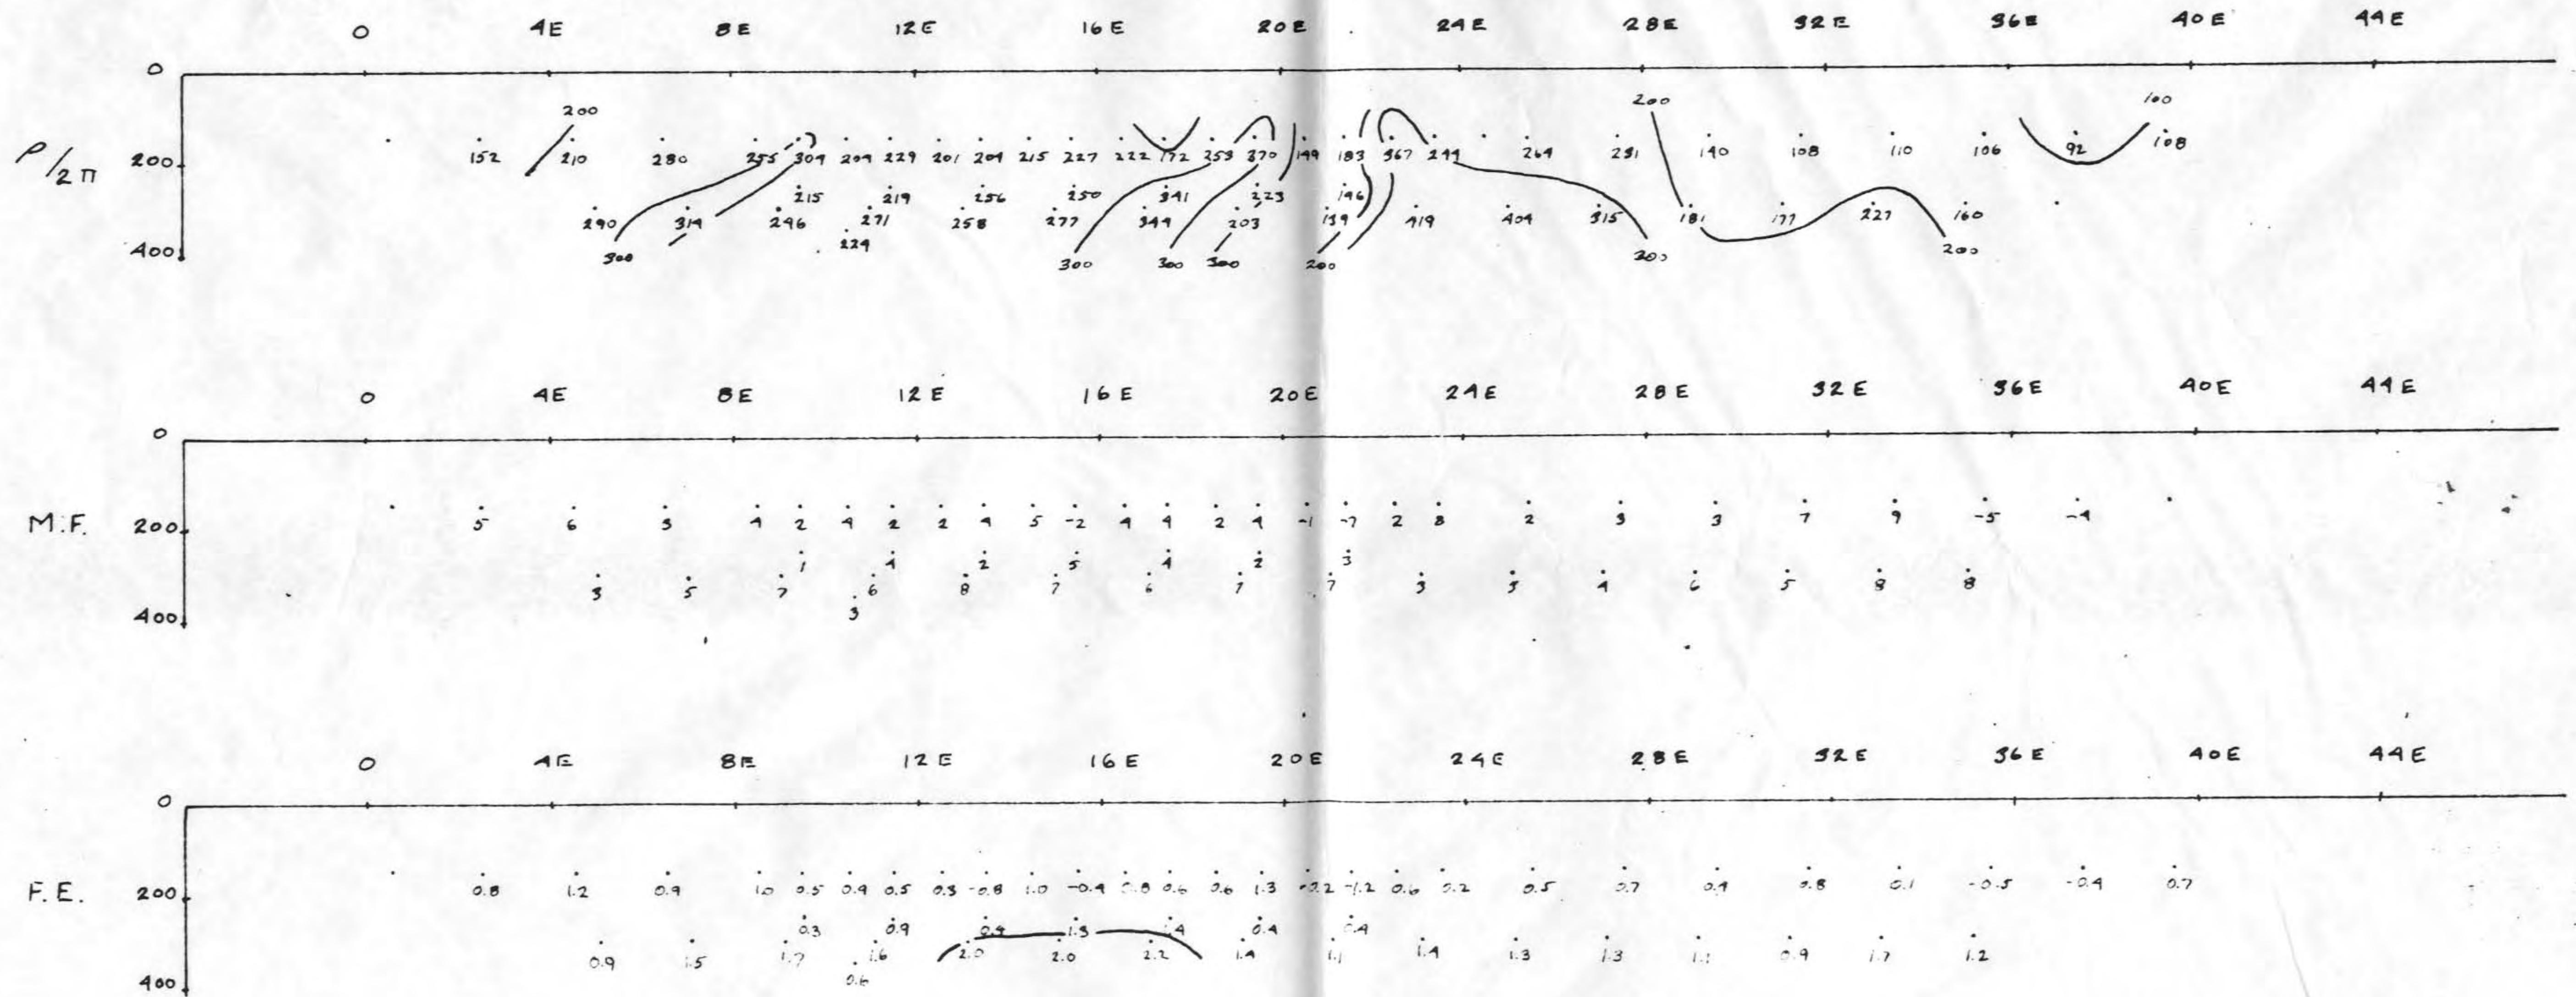 0 4E 8E 12E 16E 20E 24E 28E 32E 36E 40E 44E
0
200 200 100
ρ/2π 200 152 210 280 255 304 204 229 201 204 215 227 222 172 253 370 149 183 367 244 264 231 140 108 110 106 92 108
215 219 256 250 341 223 146
290 314 246 271 258 277 344 203 139 419 404 315 181 177 227 160
400 224
300 300 300 300 200 200 200
0 4E 8E 12E 16E 20E 24E 28E 32E 36E 40E 44E
0
M.F. 200 5 6 3 4 2 4 2 2 4 5 -2 4 4 2 4 -1 -7 2 8 2 3 3 7 9 -5 -4
1 4 2 5 4 2 3
3 5 7 6 8 7 6 7 7 3 5 4 6 5 8 8
400 3
0 4E 8E 12E 16E 20E 24E 28E 32E 36E 40E 44E
0
F.E. 200 0.8 1.2 0.9 1.0 0.5 0.9 0.5 0.3 -0.8 1.0 -0.4 0.8 0.6 0.6 1.3 -0.2 -1.2 0.6 0.2 0.5 0.7 0.4 0.8 0.1 -0.5 -0.4 0.7
0.3 0.9 0.4 1.3 1.4 0.4 0.4
0.9 1.5 1.7 1.6 2.0 2.0 2.2 1.4 1.1 1.4 1.3 1.3 1.1 0.9 1.7 1.2
400 0.6